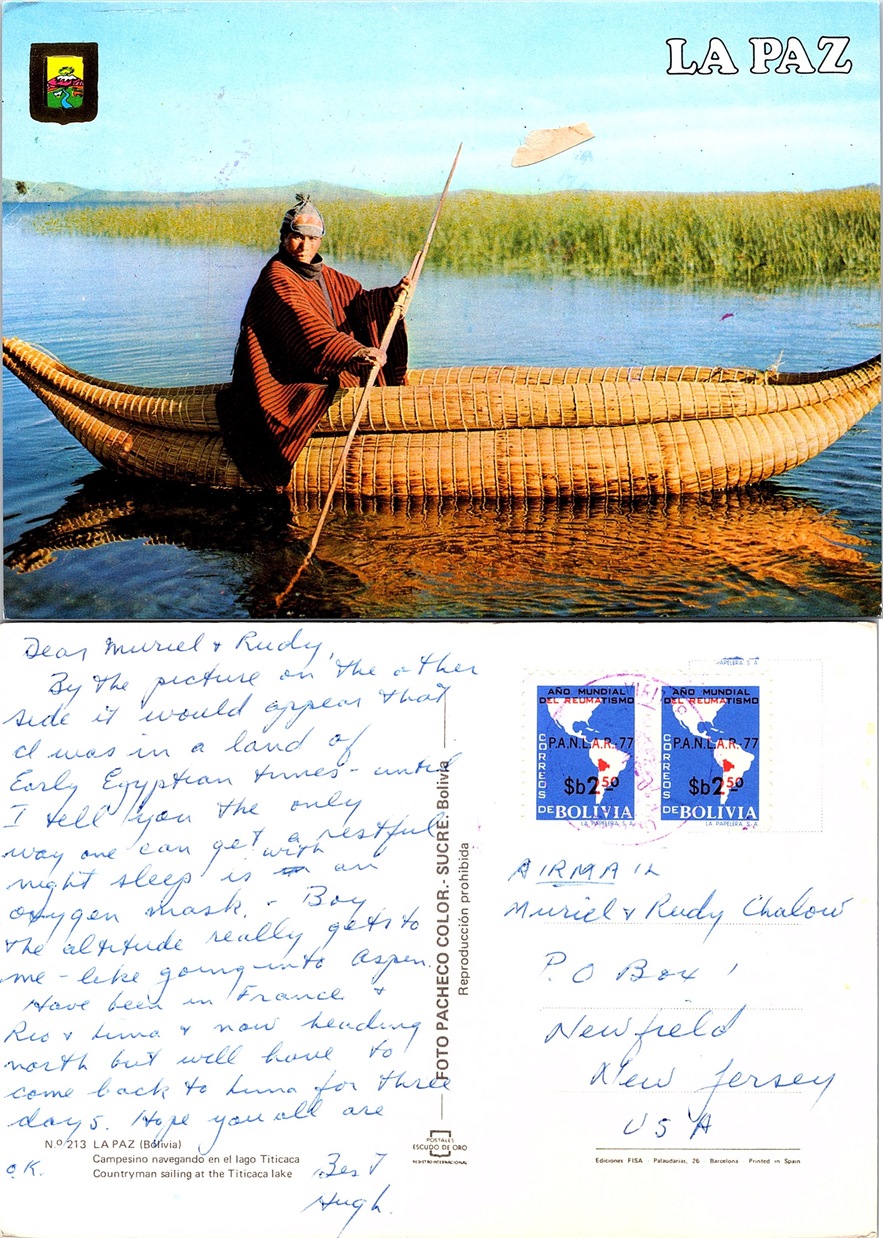 LA PAZ
Dear Muriel & Rudy,
By the picture on the other
side it would appear that
I was in a land of
Early Egyptian times - until
I tell you the only
way one can get a restful
night sleep is with an
oxygen mask. - Boy
the altitude really gets to
me - like going into Aspen.
Have been in France &
Rio & Lima & now heading
north but will have to
come back to Lima for three
days. Hope you all are
O.K.
Best
Hugh.
N.º 213 LA PAZ (Bolivia)
Campesino navegando en el lago Titicaca
Countryman sailing at the Titicaca lake
FOTO PACHECO COLOR.- SUCRE. Bolivia
Reproducción prohibida
POSTALES
ESCUDO DE ORO
REGISTRO INTERNACIONAL
PAPELERA S. A.
AÑO MUNDIAL
DEL REUMATISMO
P.A.N.L.A.R.-77
$b2.50
CORREOS
DE BOLIVIA
LA PAPELERA S. A.
AÑO MUNDIAL
DEL REUMATISMO
P.A.N.L.A.R.-77
$b2.50
CORREOS
DE BOLIVIA
LA PAPELERA S. A.
AIRMAIL
Muriel & Rudy Chalow
P.O Box 1
Newfield
New Jersey
USA
Ediciones FISA. Palaudarias, 26 Barcelona Printed in Spain